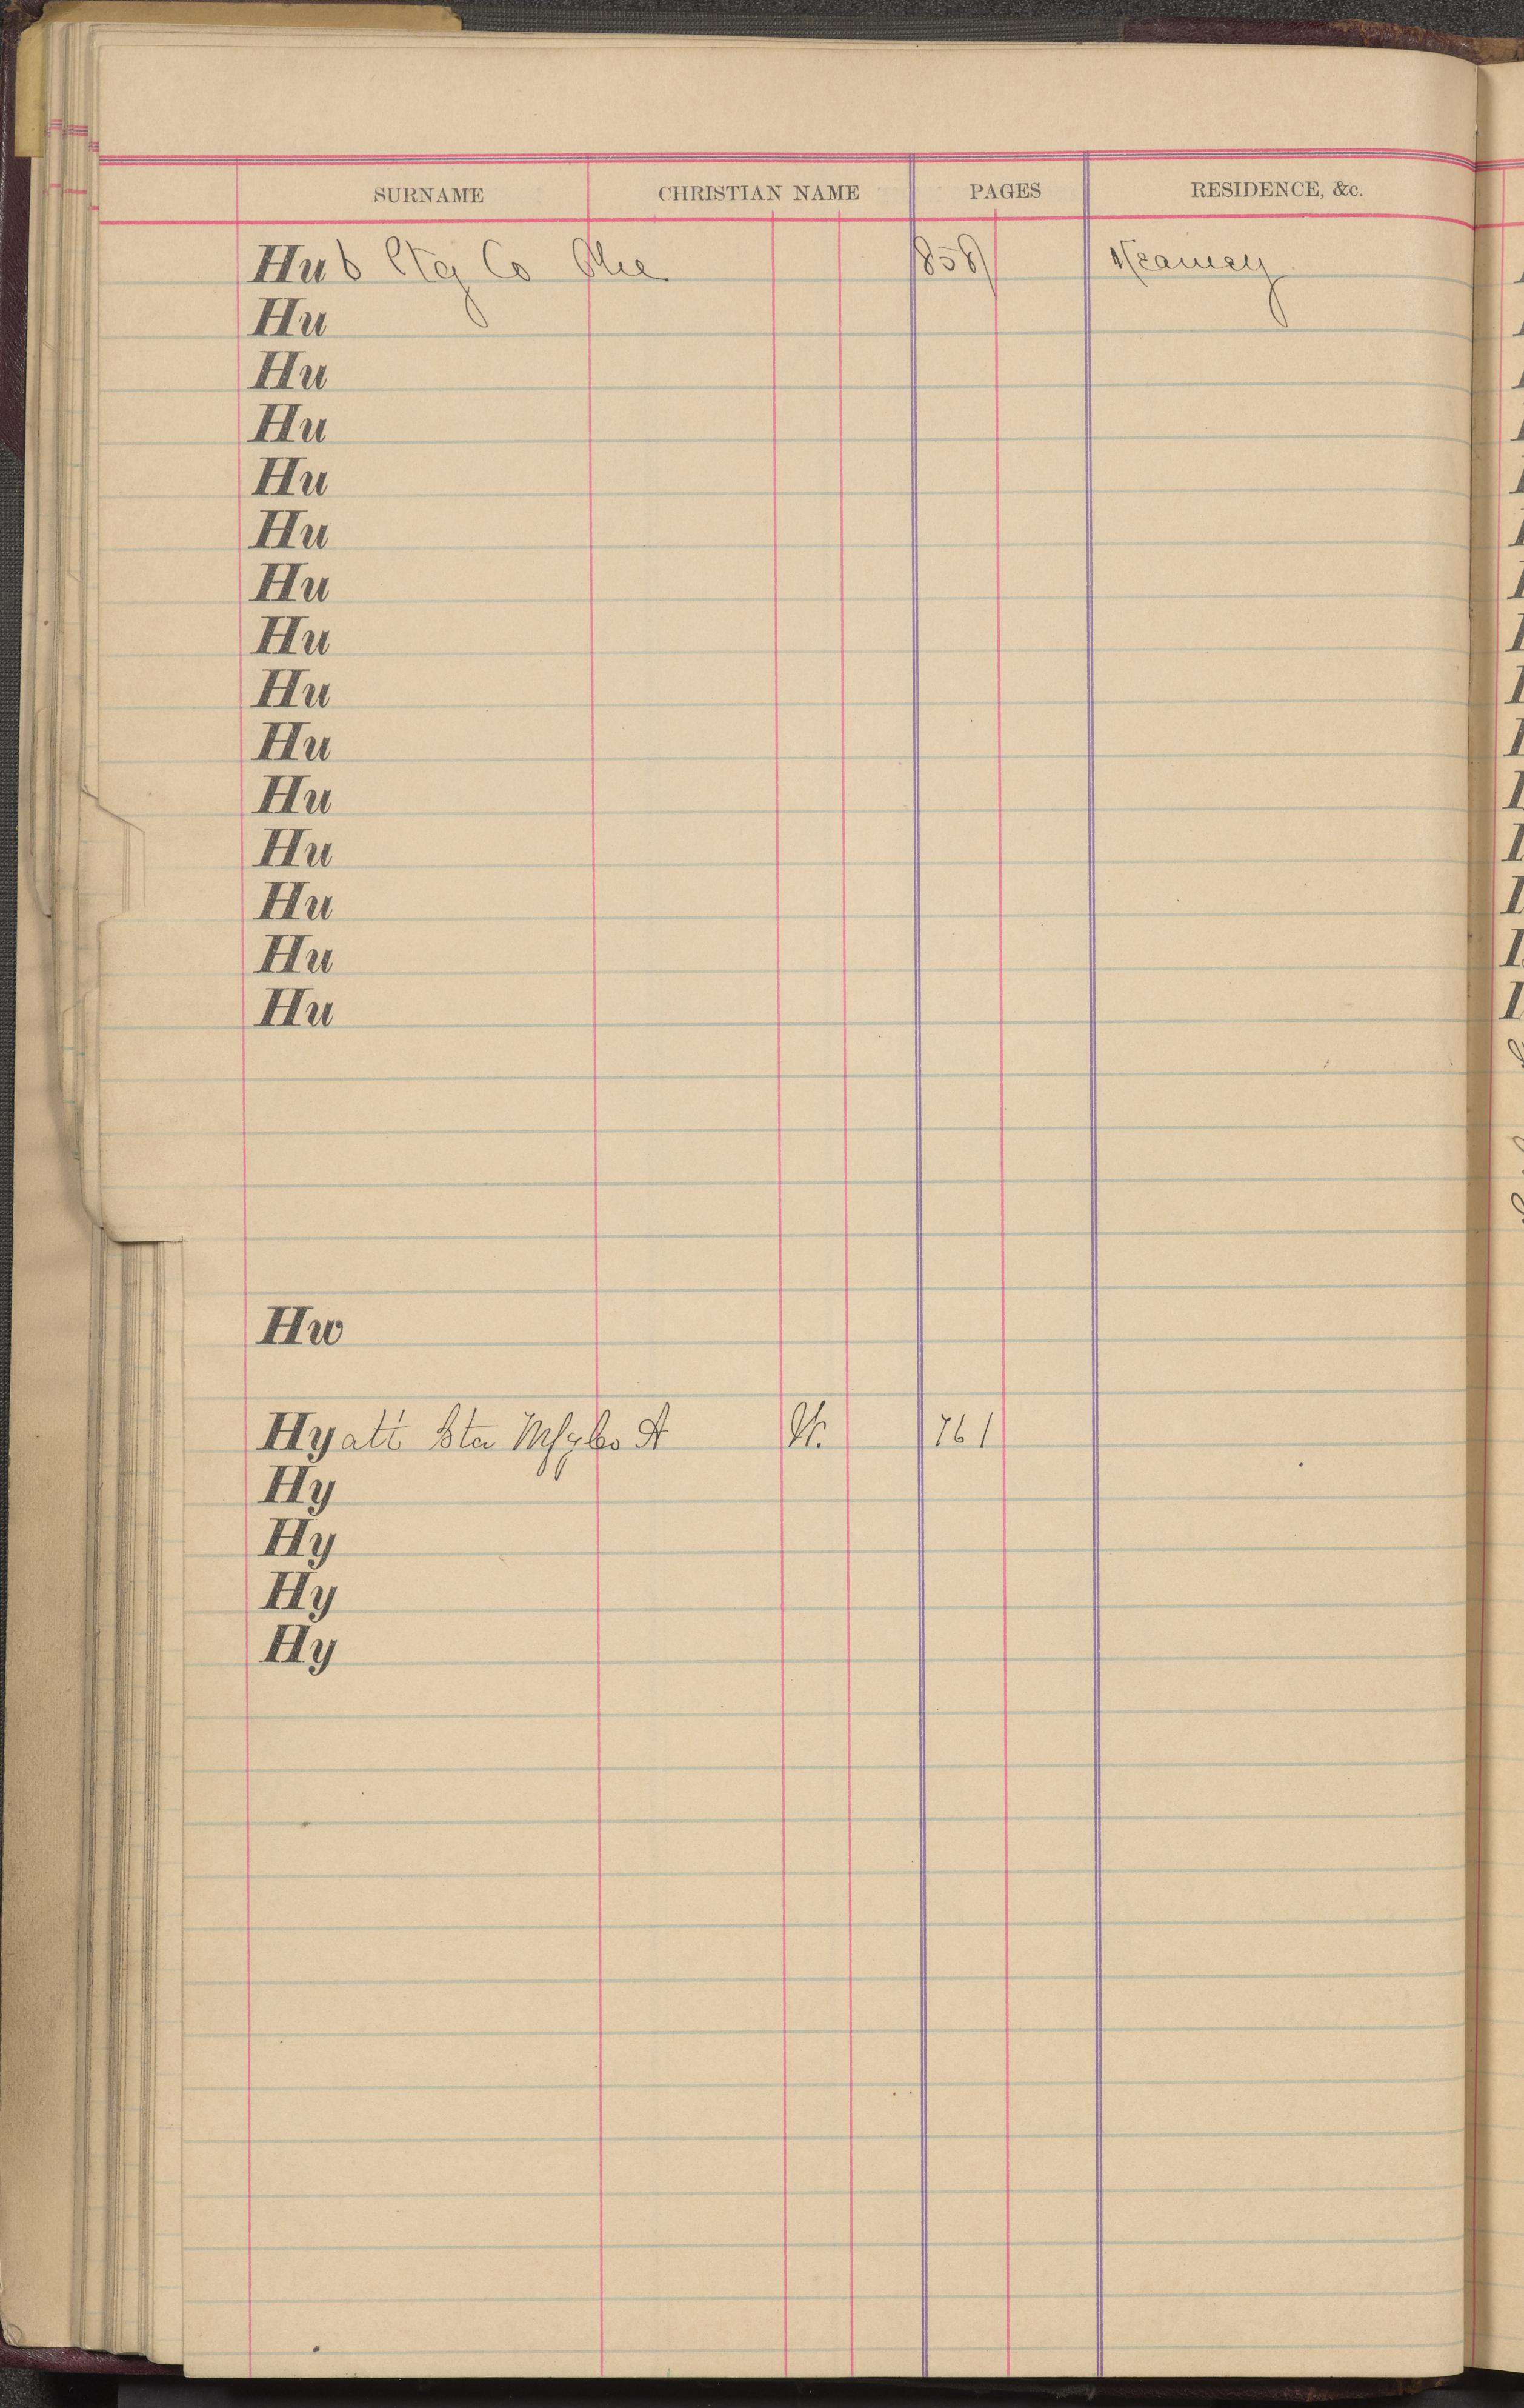 SURNAME CHRISTIAN NAME PAGES RESIDENCE, &c.
Hub Ctg Co The 858 Kearney
Hu
Hu
Hu
Hu
Hu
Hu
Hu
Hu
Hu
Hu
Hu
Hu
Hu
Hu
Hw
Hyatt Mfg Co A 761
Hy
Hy
Hy
Hy